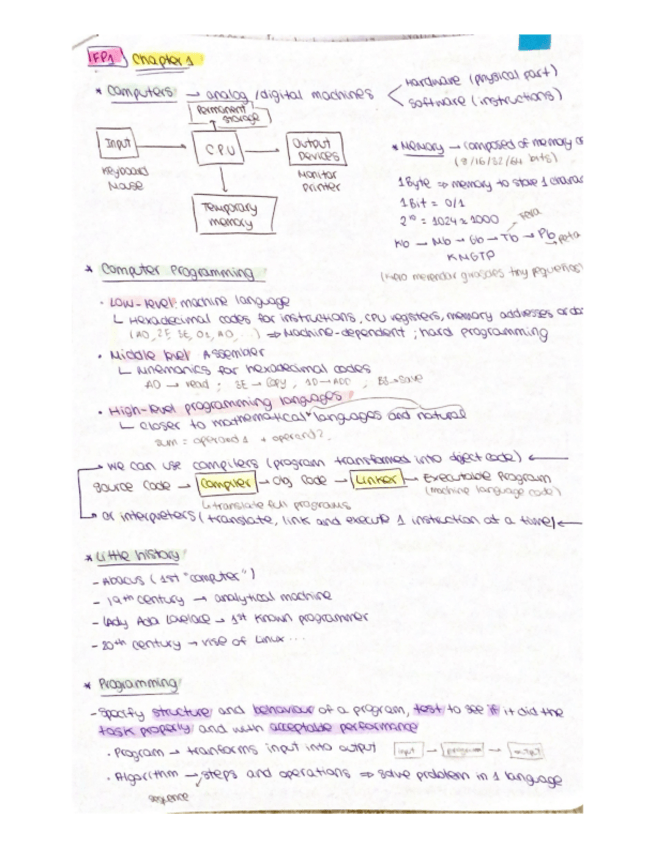 FP1 Chapter 1
* Computers → analog / digital machines
Hardware (physical part)
Software (instructions)
Permanent storage
Input
CPU
Output Devices
Keyboard
Mouse
Monitor
printer
Temporary memory
* Memory → composed of memory
(8/16/32/64 bits)
1 Byte ⇒ memory to store 1
1 Bit = 0/1
2¹⁰ = 1024 ≈ 1000
Tera
Kb → Mb → Gb → Tb → Pb
Peta
KMGTP
(Kero merendar girasoles tiny pequeños
* Computer Programming
· Low-level: machine language
Hexadecimal codes for instructions, CPU registers, memory addresses or
⇒ Machine-dependent; hard programming
· Middle level Assembler
Mnemonics for hexadecimal codes
A0 → read ; 5E → Copy , 1D → ADD ; → save
· High-level programming languages
Closer to mathematical languages and natural
sum = operand1 + operand2.
we can use compilers (program transformed into object code)
Source Code → Compiler → Obj Code → Linker → Executable Program
(machine language code)
translate full programs
or interpreters (translate, link and execute 1 instruction at a time)
* Little history
- Abacus (1st "computer")
- 19th century → analytical machine
- Lady Ada Lovelace → 1st known programmer
- 20th century → rise of Linux ...
* Programming
- Specify structure and behaviour of a program, test to see if it did the
task properly and with acceptable performance
· Program → transforms input into output input → program → output
· Algorithm → steps and operations ⇒ solve problem in 1 language
sequence